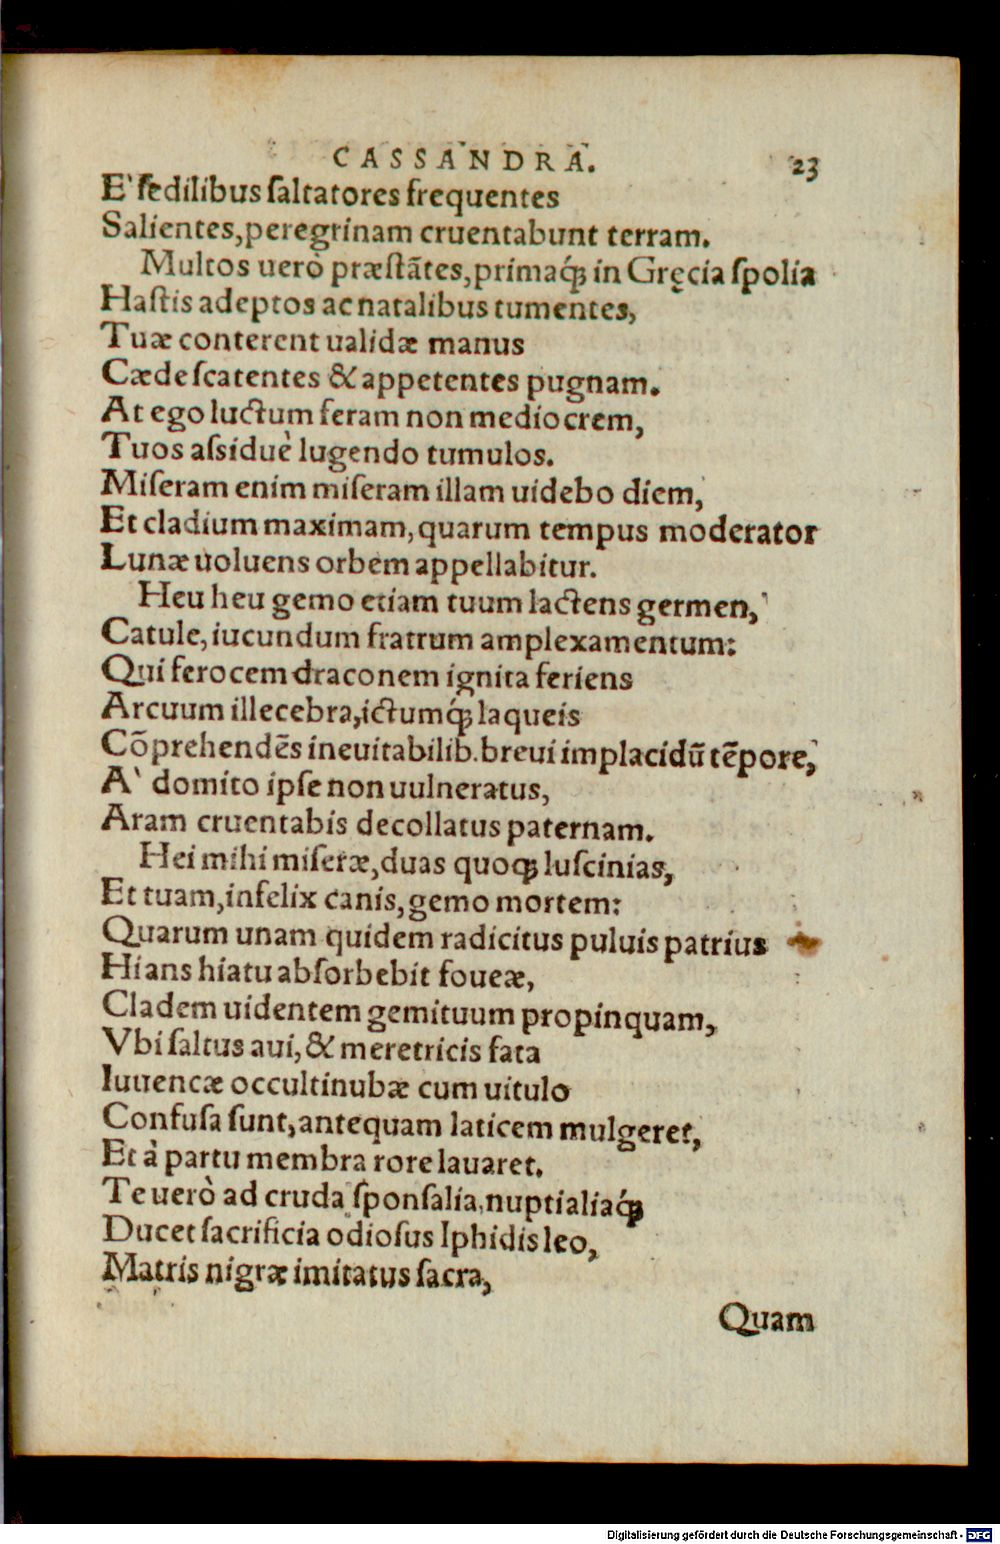 CASSANDRA. 23
E' ſedilibus ſaltatores frequentes
Salientes, peregrinam cruentabunt terram.
Multos uerò præſtātes, primaq́ꝫ in Gręcia ſpolia
Haſtis adeptos ac natalibus tumentes,
Tuæ conterent ualidæ manus
Cæde ſcatentes & appetentes pugnam.
At ego luctum feram non mediocrem,
Tuos aſsiduè lugendo tumulos.
Miſeram enim miſeram illam uidebo diem,
Et cladium maximam, quarum tempus moderator
Lunæ uoluens orbem appellabitur.
Heu heu gemo etiam tuum lactens germen,
Catule, iucundum fratrum amplexamentum:
Qui ferocem draconem ignita feriens
Arcuum illecebra, ictumq́ꝫ laqueis
Cōprehendēs ineuitabilib. breui implacidū tēpore,
A' domito ipſe non uulneratus,
Aram cruentabis decollatus paternam.
Hei mihi miſeræ, duas quoqꝫ luſcinias,
Et tuam, infelix canis, gemo mortem:
Quarum unam quidem radicitus puluis patrius
Hians hiatu abſorbebit foueæ,
Cladem uidentem gemituum propinquam,
Vbi ſaltus aui, & meretricis fata
Iuuencæ occultinubæ cum uitulo
Confuſa ſunt, antequam laticem mulgeret,
Et à partu membra rore lauaret.
Te uerò ad cruda ſponſalia, nuptialiaq́ꝫ
Ducet ſacrificia odioſus Iphidis leo,
Matris nigræ imitatus ſacra,
Quam
Digitalisierung gefördert durch die Deutsche Forschungsgemeinschaft - DFG